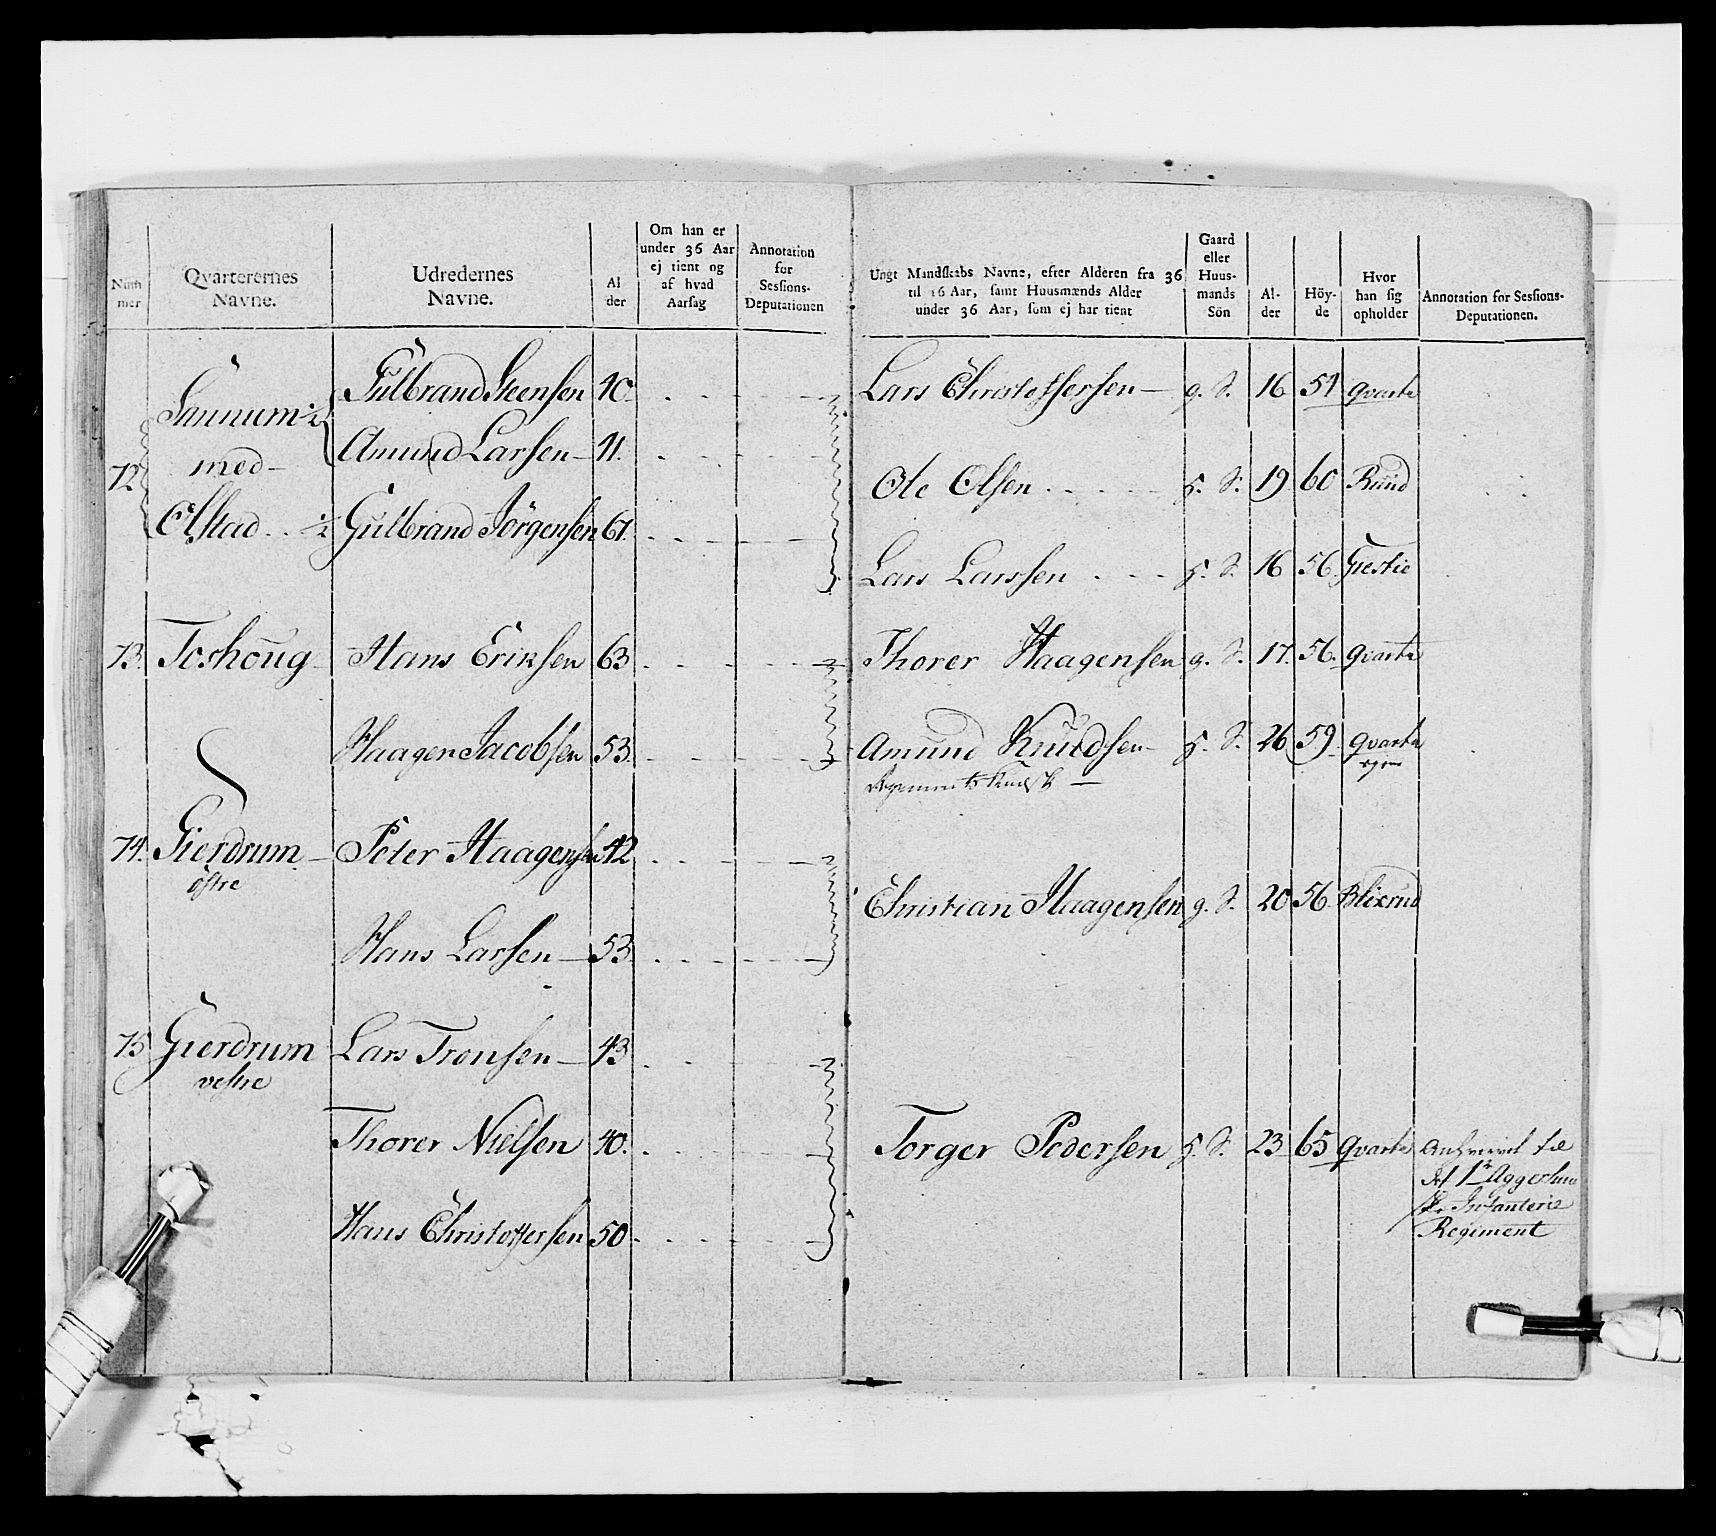 Num
mer
Qvarterernes
Navne.
Udredernes
Navne.
Al
der
Om han er
under 36 Aar
ej tient og
af hvad
Aarsag
Annotation
for
Sessions-
Deputationen
Ungt Mandskabs Navne, efter Alderen fra 36
til 16 Aar, samt Huusmænds Alder
under 36 Aar, som ej har tient
Gaard
eller
Huus-
mands
Sön
Al-
der
Höy-
de
Hvor
han sig
opholder
Annotation for Sessions-
Deputationen.
72. Sannum ½ med Ølstad ½
Gulbrand Steensen 40.
Amund Larsen 41.
Gulbrand Jörgensen 61.
Lars Christophersen g. S. 16 51 qvarte
Ole Olsen h. S. 19 60 Ruud
Lars Larssen h. S. 16 56
73. Toshoug Hans Eriksen 63
Thorer Haagensen g. S. 17. 56. qvarte
Haagen Jacobsen 53.
Amund Knudsen h. S. 26 59 qvarte
74. Gierdrum östre Peter Haagensen 42
Christian Haagensen g. S. 20 56 Blixrud
Hans Larsen 53
75 Gierdrum vestre Lars Tronsen 43
Thorer Nielsen 40.
Torger Pedersen h. S. 23 65 qvarte
til
det 1te Aggerhuu
ske Infanterie
Regiment
Hans Christoffersen 50